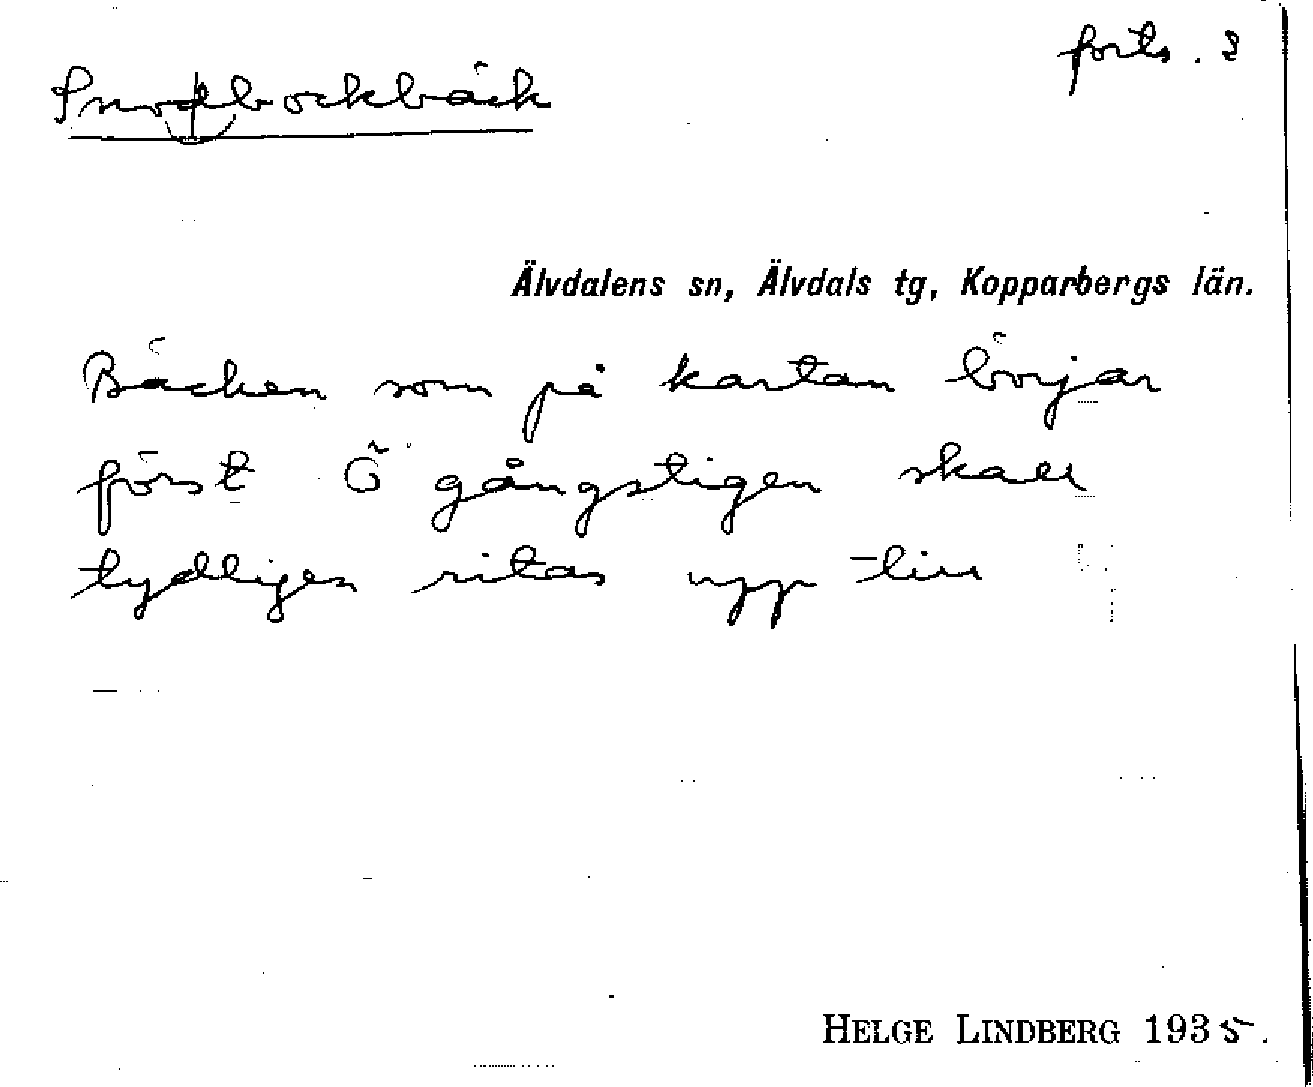 forts. 3
Snodbockbäck
Älvdalens sn, Älvdals tg, Kopparbergs län.
Bäcken som på kartan börjar
först Ö gångstigen skall
tydligen ritas upp till
HELGE LINDBERG 1935.